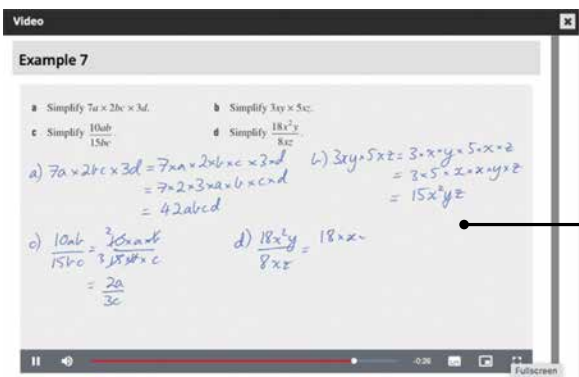 Video
Example 7
a Simplify 7a × 2bc × 3d.
b Simplify 3xy × 5xz.
c Simplify 10ab/15bc
d Simplify 18x²y/8xz
a) 7a × 2bc × 3d = 7×a × 2×b×c × 3×d
= 7×2×3×a×b×c×d
= 42abcd
b) 3xy × 5xz = 3×x×y×5×x×z
= 3×5×x×x×y×z
= 15x²yz
c) 10ab/15bc = ²10×a×b/₃15×b×c
= 2a/3c
d) 18x²y/8xz = 18×x×
-0:26
Fullscreen